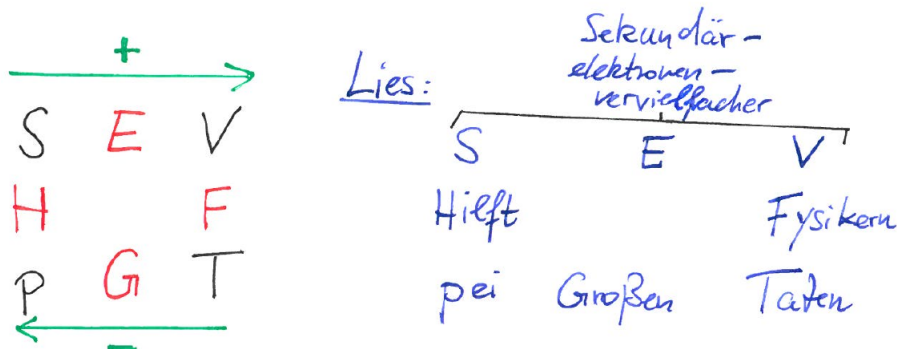 +
S E V
H F
P G T
-
Lies:
Sekundär-
elektronen-
vervielfacher
S E V
Hilft Fysikern
pei Großen Taten